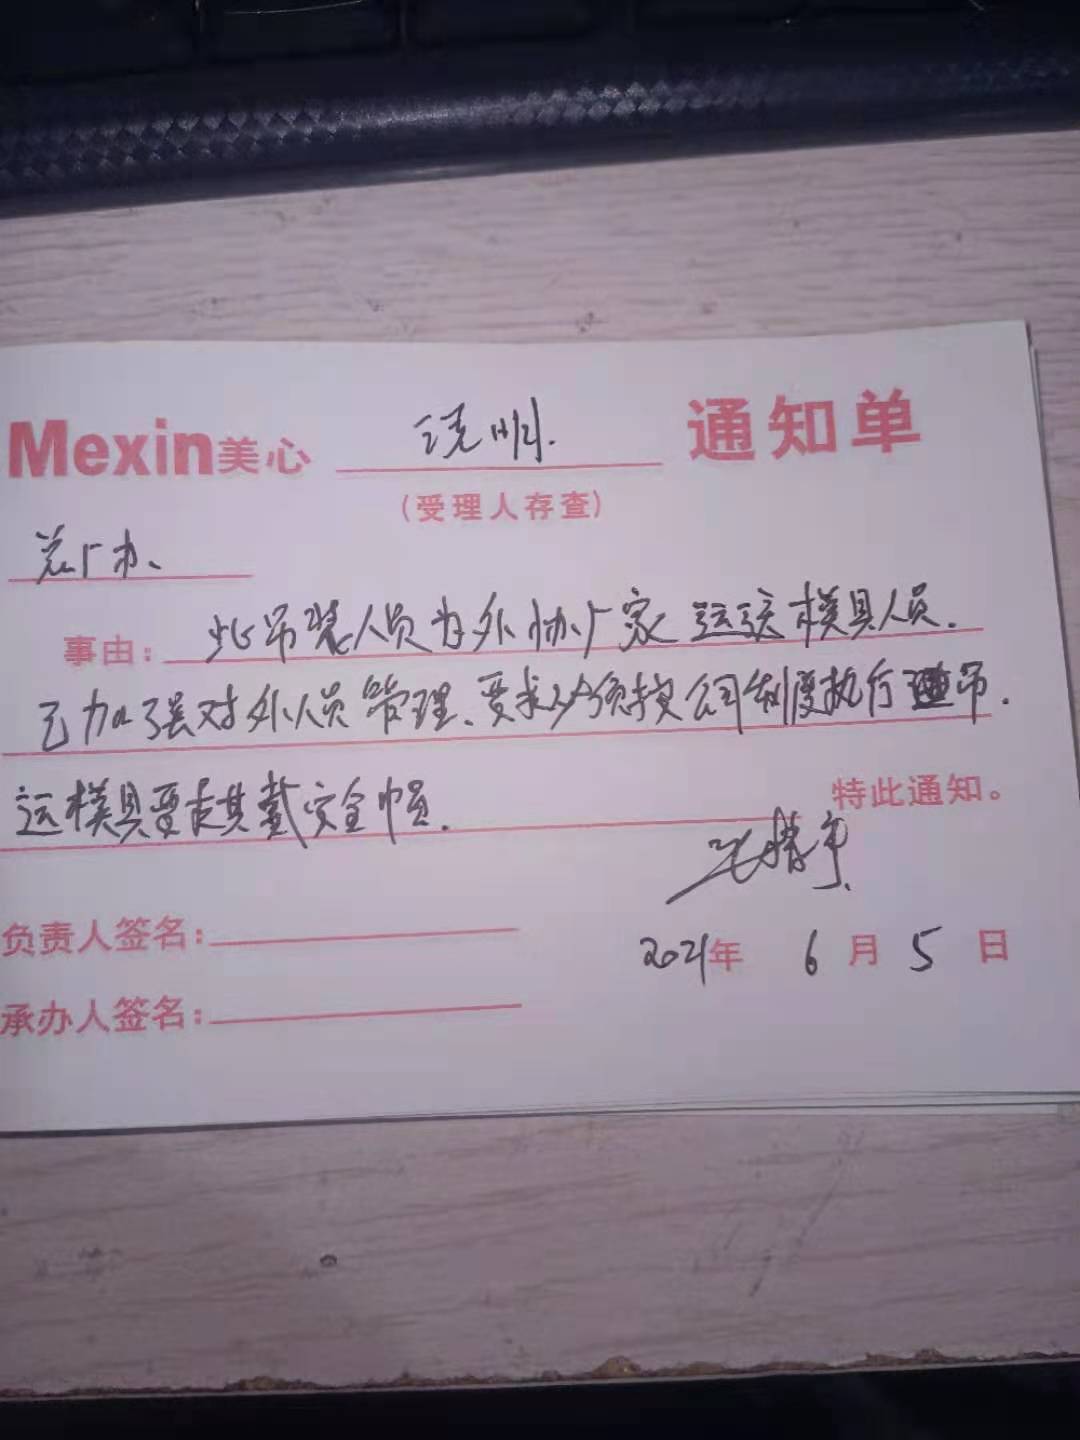 Mexin美心 说明. 通知单
(受理人存查)
总厂办、
事由: 此吊装人员为外协厂家运送模具人员.
已加强对外人员管理、要求必须按公司制度执行 吊
运模具要求其戴安全帽. 特此通知。
负责人签名:
2021年 6月 5日
承办人签名: